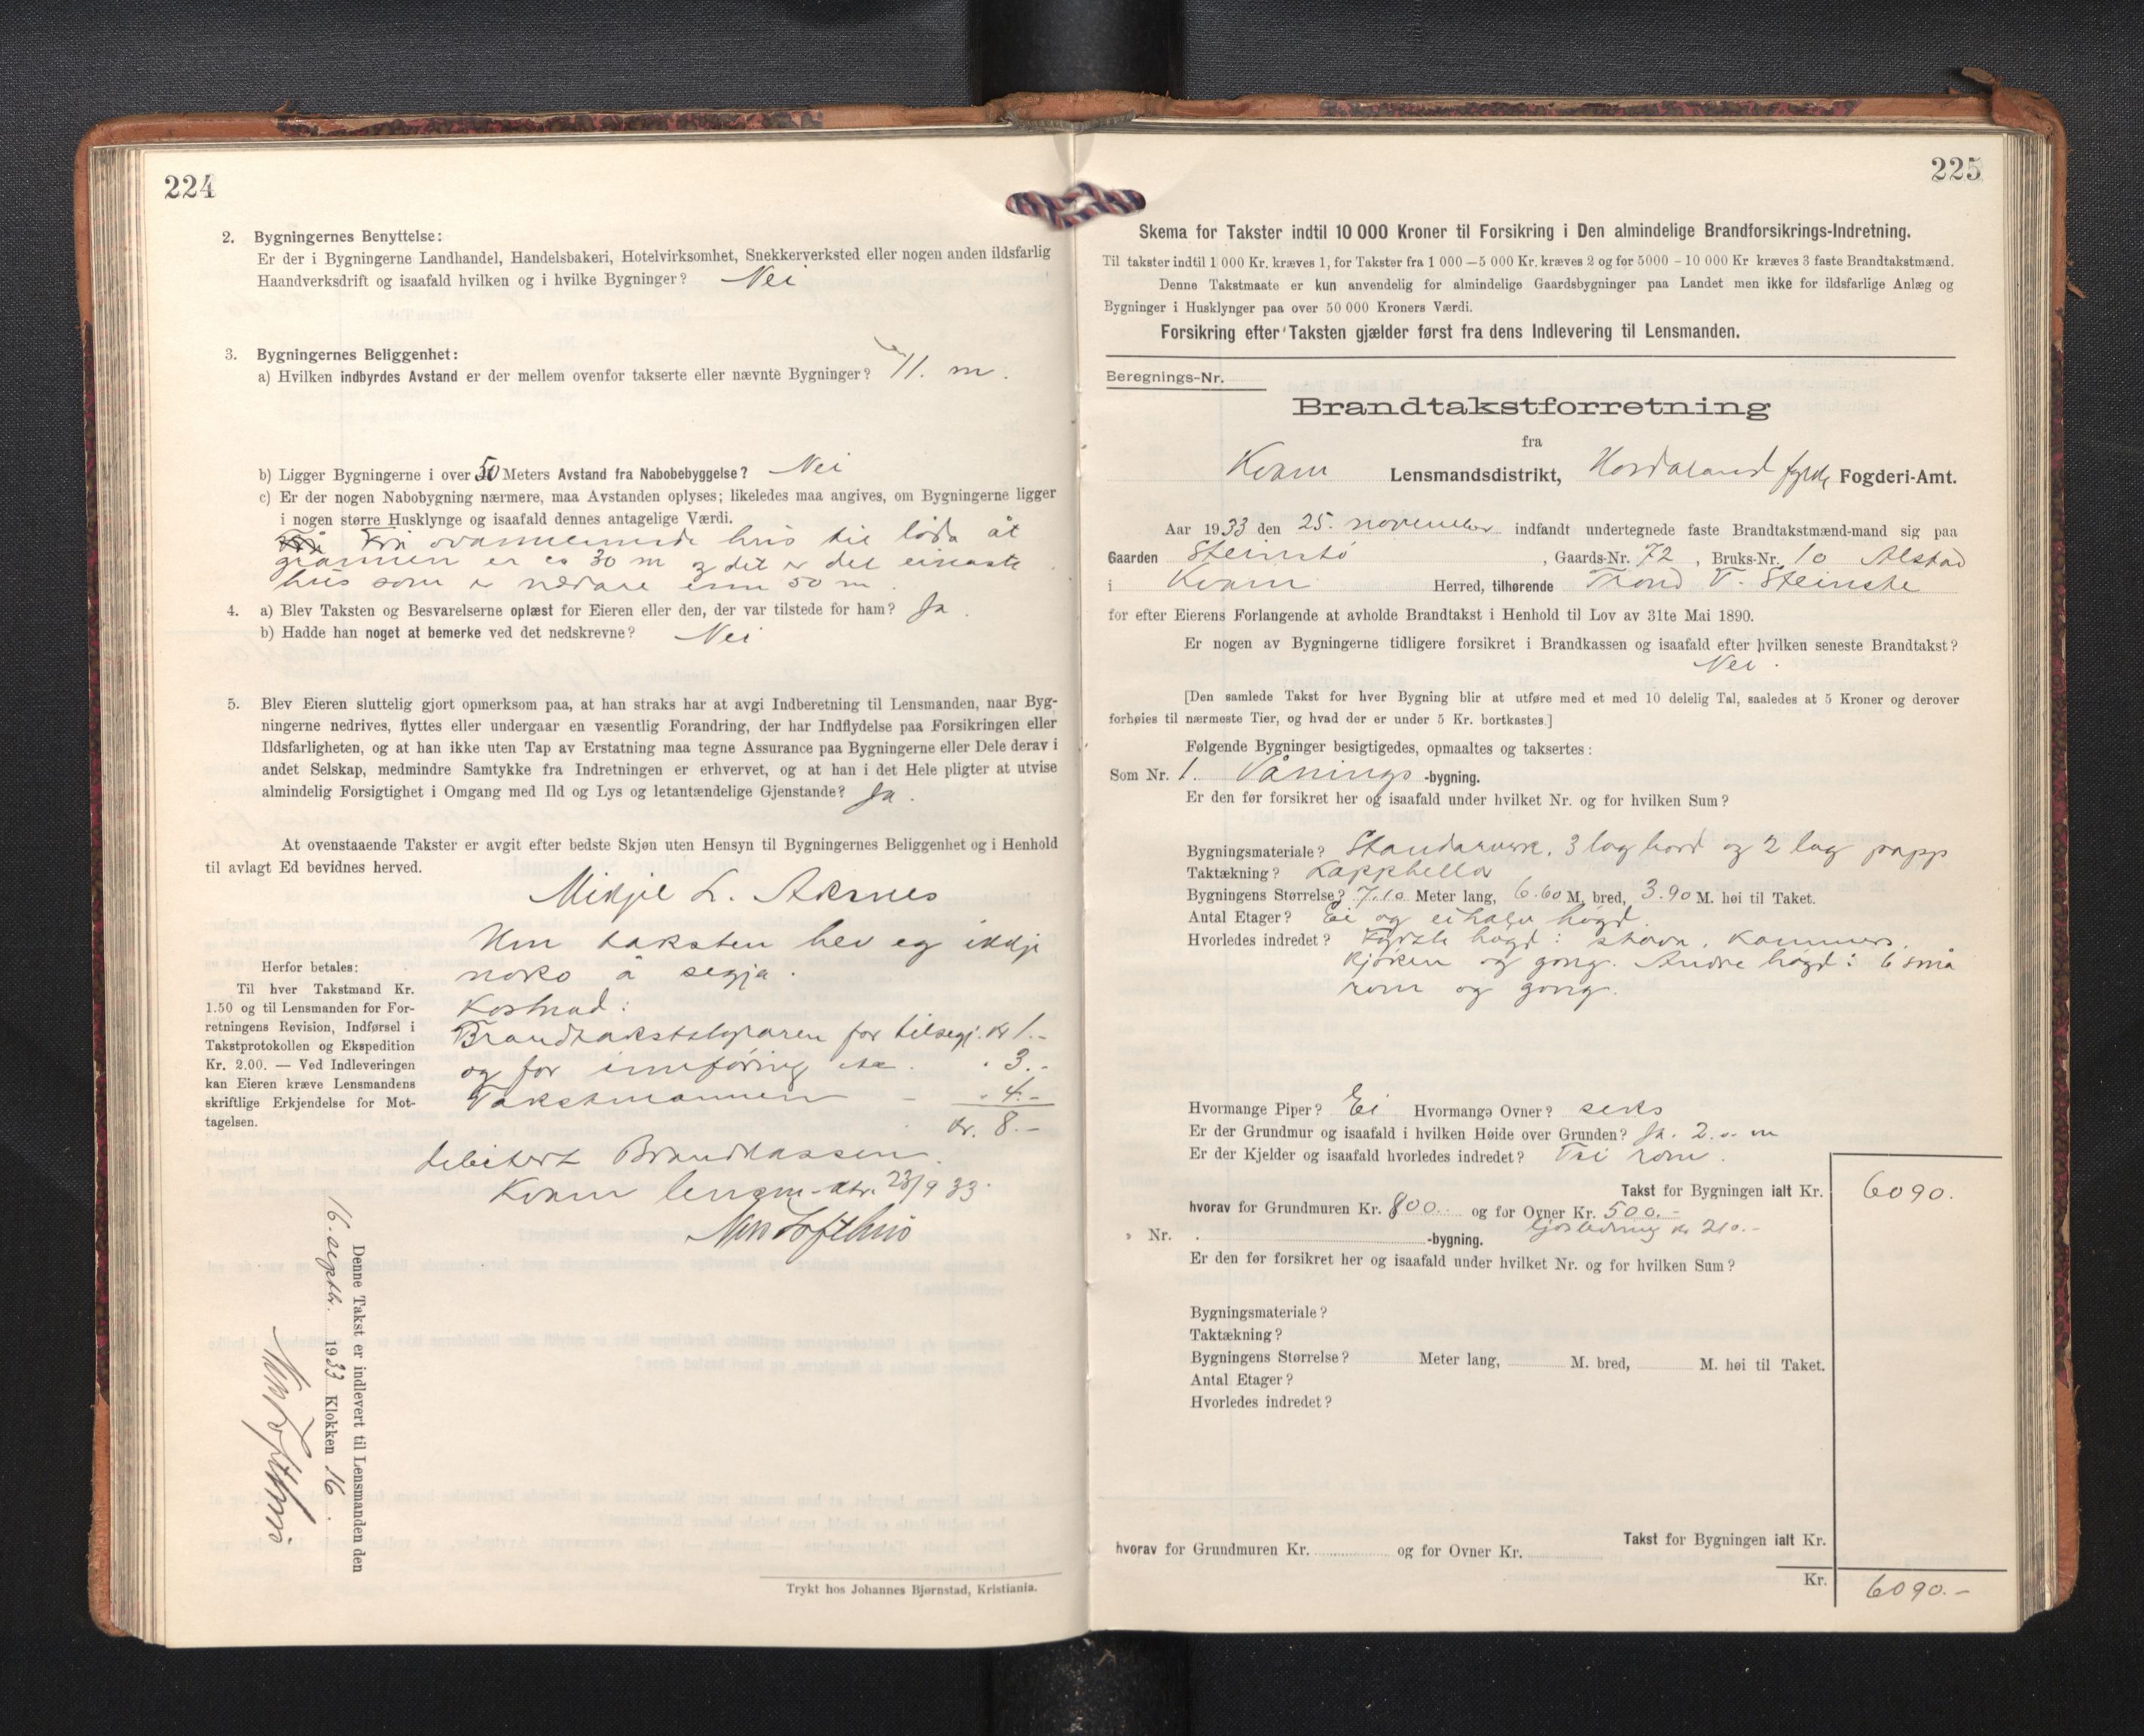 224
2. Bygningernes Benyttelse:
Er der i Bygningerne Landhandel, Handelsbakeri, Hotelvirksomhet, Snekkerverksted eller nogen anden ildsfarlig
Haandverksdrift og isaafald hvilken og i hvilke Bygninger? Nei
3. Bygningernes Beliggenhet:
a) Hvilken indbyrdes Avstand er der mellem ovenfor takserte eller nævnte Bygninger? 11. m.
b) Ligger Bygningerne i over 50 Meters Avstand fra Nabobebyggelse? Nei
c) Er der nogen Nabobygning nærmere, maa Avstanden oplyses; likeledes maa angives, om Bygningerne ligger
i nogen større Husklynge og isaafald dennes antagelige Værdi.
Frå ovannemnde hus til löda åt
grannen er ca 30 m og det er det einaste
hus som er nærare enn 50 m
4. a) Blev Taksten og Besvarelserne oplæst for Eieren eller den, der var tilstede for ham? Ja.
b) Hadde han noget at bemerke ved det nedskrevne? Nei
5. Blev Eieren sluttelig gjort opmerksom paa, at han straks har at avgi Indberetning til Lensmanden, naar Byg-
ningerne nedrives, flyttes eller undergaar en væsentlig Forandring, der har Indflydelse paa Forsikringen eller
Ildsfarligheten, og at han ikke uten Tap av Erstatning maa tegne Assurance paa Bygningerne eller Dele derav i
andet Selskap, medmindre Samtykke fra Indretningen er erhvervet, og at han i det Hele pligter at utvise
almindelig Forsigtighet i Omgang med Ild og Lys og letantændelige Gjenstande? Ja.
At ovenstaaende Takster er avgit efter bedste Skjøn uten Hensyn til Bygningernes Beliggenhet og i Henhold
til avlagt Ed bevidnes herved.
Mikjel L. Aksnes
Um taksten hev eg ikkje
noko å segja.
Kostnad:
Brandtakstskjønaren for tilsegj. kr 1.-
og for innføring . 3.-
Takstmannen - . 4.-
Kr. 8.-
Debitert Brandkassen.
Kvam lensm.ktr. 23/9 33.
Nils Tofthus
Herfor betales:
Til hver Takstmand Kr.
1.50 og til Lensmanden for For-
retningens Revision, Indførsel i
Takstprotokollen og Ekspedition
Kr. 2.00. — Ved Indleveringen
kan Eieren kræve Lensmandens
skriftlige Erkjendelse for Mot-
tagelsen.
Denne Takst er indlevert til Lensmanden den
16. septbr. 1933 Klokken 16.
Nils Tofthus
Trykt hos Johannes Bjørnstad, Kristiania.
225
Skema for Takster indtil 10 000 Kroner til Forsikring i Den almindelige Brandforsikrings-Indretning.
Til takster indtil 1 000 Kr. kræves 1, for Takster fra 1 000 — 5 000 Kr. kræves 2 og for 5000 - 10 000 Kr kræves 3 faste Brandtakstmænd.
Denne Takstmaate er kun anvendelig for almindelige Gaardsbygninger paa Landet men ikke for ildsfarlige Anlæg og
Bygninger i Husklynger paa over 50 000 Kroners Værdi.
Forsikring efter Taksten gjælder først fra dens Indlevering til Lensmanden.
Beregnings-Nr.
Brandtakstforretning
fra
Kvam Lensmandsdistrikt, Hordaland fylde Fogderi-Amt.
Aar 1933 den 25. november indfandt undertegnede faste Brandtakstmænd-mand sig paa
Gaarden Steinstö, Gaards-Nr. 72, Bruks-Nr. 10 Alstad
i Kvam Herred, tilhørende Trond T. Steinstö
for efter Eierens Forlangende at avholde Brandtakst i Henhold til Lov av 31te Mai 1890.
Er nogen av Bygningerne tidligere forsikret i Brandkassen og isaafald efter hvilken seneste Brandtakst?
Nei.
[Den samlede Takst for hver Bygning blir at utføre med et med 10 delelig Tal, saaledes at 5 Kroner og derover
forhøies til nærmeste Tier, og hvad der er under 5 Kr. bortkastes.]
Følgende Bygninger besigtigedes, opmaaltes og taksertes:
Som Nr. 1. Vånings-bygning.
Er den før forsikret her og isaafald under hvilket Nr. og for hvilken Sum?
Bygningsmateriale? Standarverk. 3 lag bord og 2 lag papp
Taktækning? Kapphella
Bygningens Størrelse? 7.10 Meter lang, 6.60 M. bred, 3.90 M. høi til Taket.
Antal Etager? Ei og ei halv högd.
Hvorledes indredet? Fyrste högd: stova, kammers,
kjöken og gong. Andre högd: 6 små
rom og gong.
Hvormange Piper? Ei Hvormange Ovner? seks
Er der Grundmur og isaafald i hvilken Høide over Grunden? Ja. 2.00 m
Er der Kjelder og isaafald hvorledes indredet? Tvi rom.
Takst for Bygningen ialt Kr. 6090.
hvorav for Grundmuren Kr. 800.- og for Ovner Kr. 500.-
ljosledning kr 210.-
" Nr. -bygning.
Er den før forsikret her og isaafald under hvilket Nr. og for hvilken Sum?
Bygningsmateriale?
Taktækning?
Bygningens Størrelse? Meter lang, M. bred, M. høi til Taket.
Antal Etager?
Hvorledes indredet?
Takst for Bygningen ialt Kr.
hvorav for Grundmuren Kr. og for Ovner Kr.
Kr. 6090.-